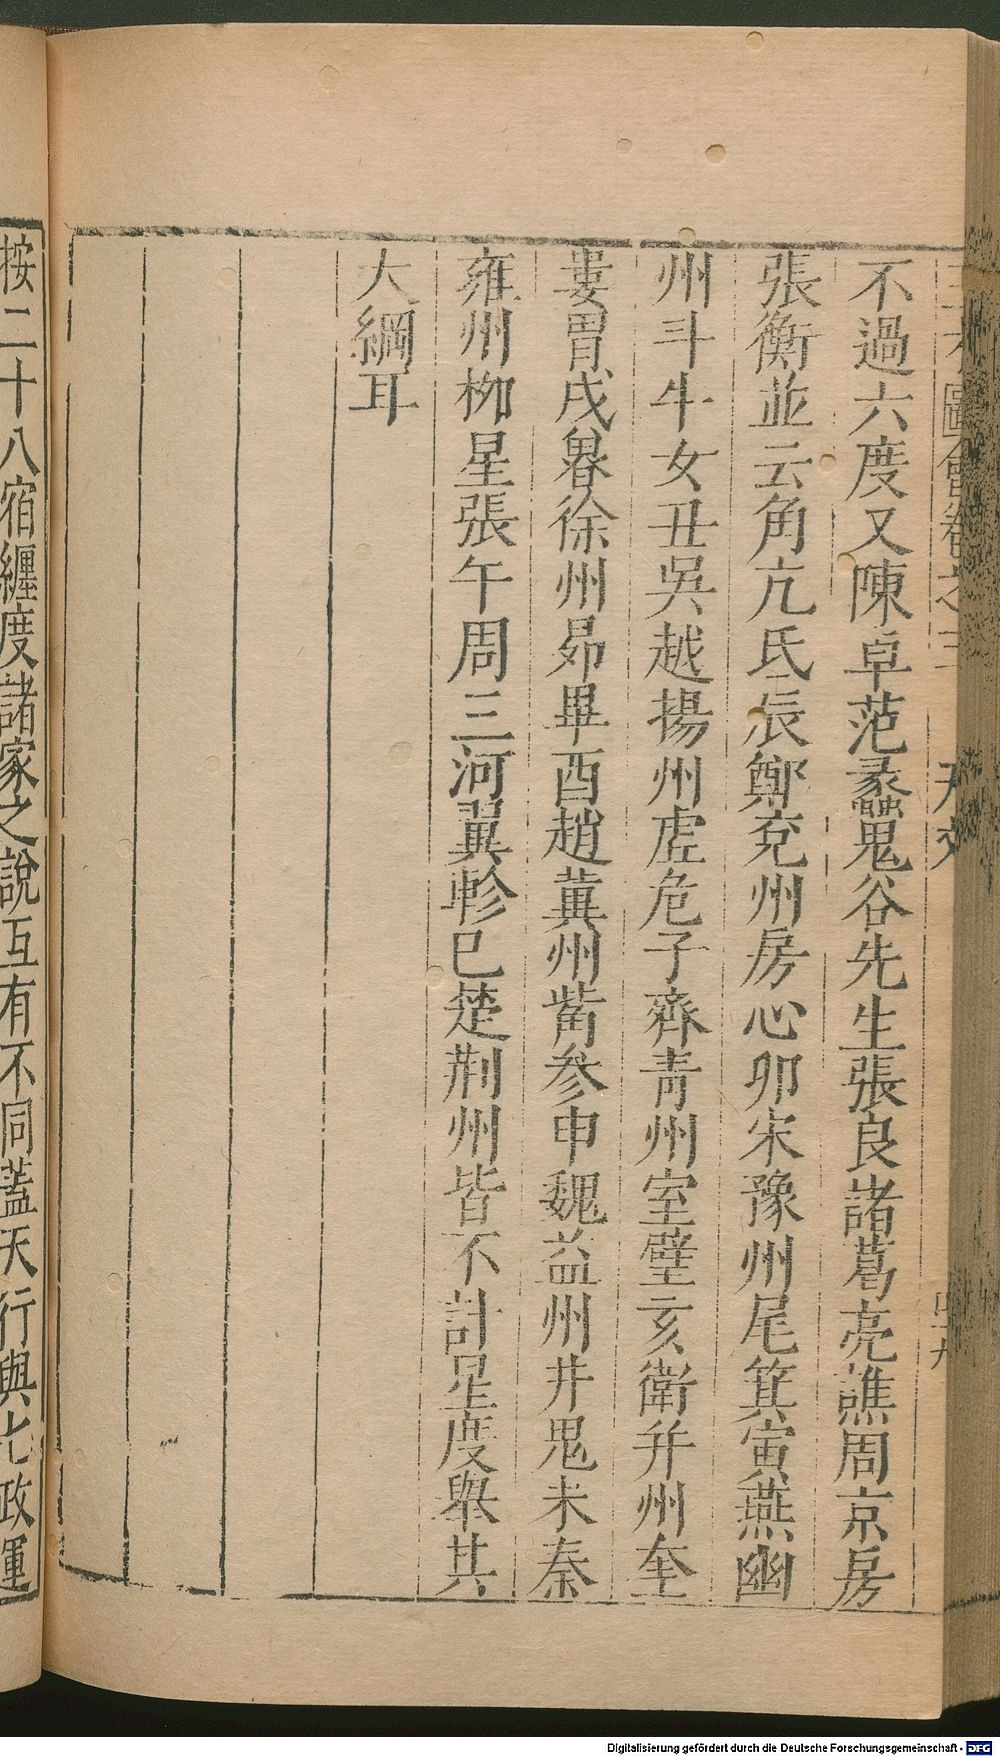 三才圖會卷之三 天文 四十九
不過六度又陳卓范蠡鬼谷先生張良諸葛亮譙周京房
張衡並云角亢氐辰鄭兗州房心卯宋豫州尾箕寅燕幽
州斗牛女丑吳越揚州虛危子齊青州室壁亥衛并州奎
婁胃戌魯徐州昴畢酉趙冀州觜參申魏益州井鬼未秦
雍州柳星張午周三河翼軫巳楚荆州皆不計星度舉其
大綱耳
按二十八宿纏度諸家之說互有不同蓋天行與七政運
Digitalisierung gefördert durch die Deutsche Forschungsgemeinschaft - DFG